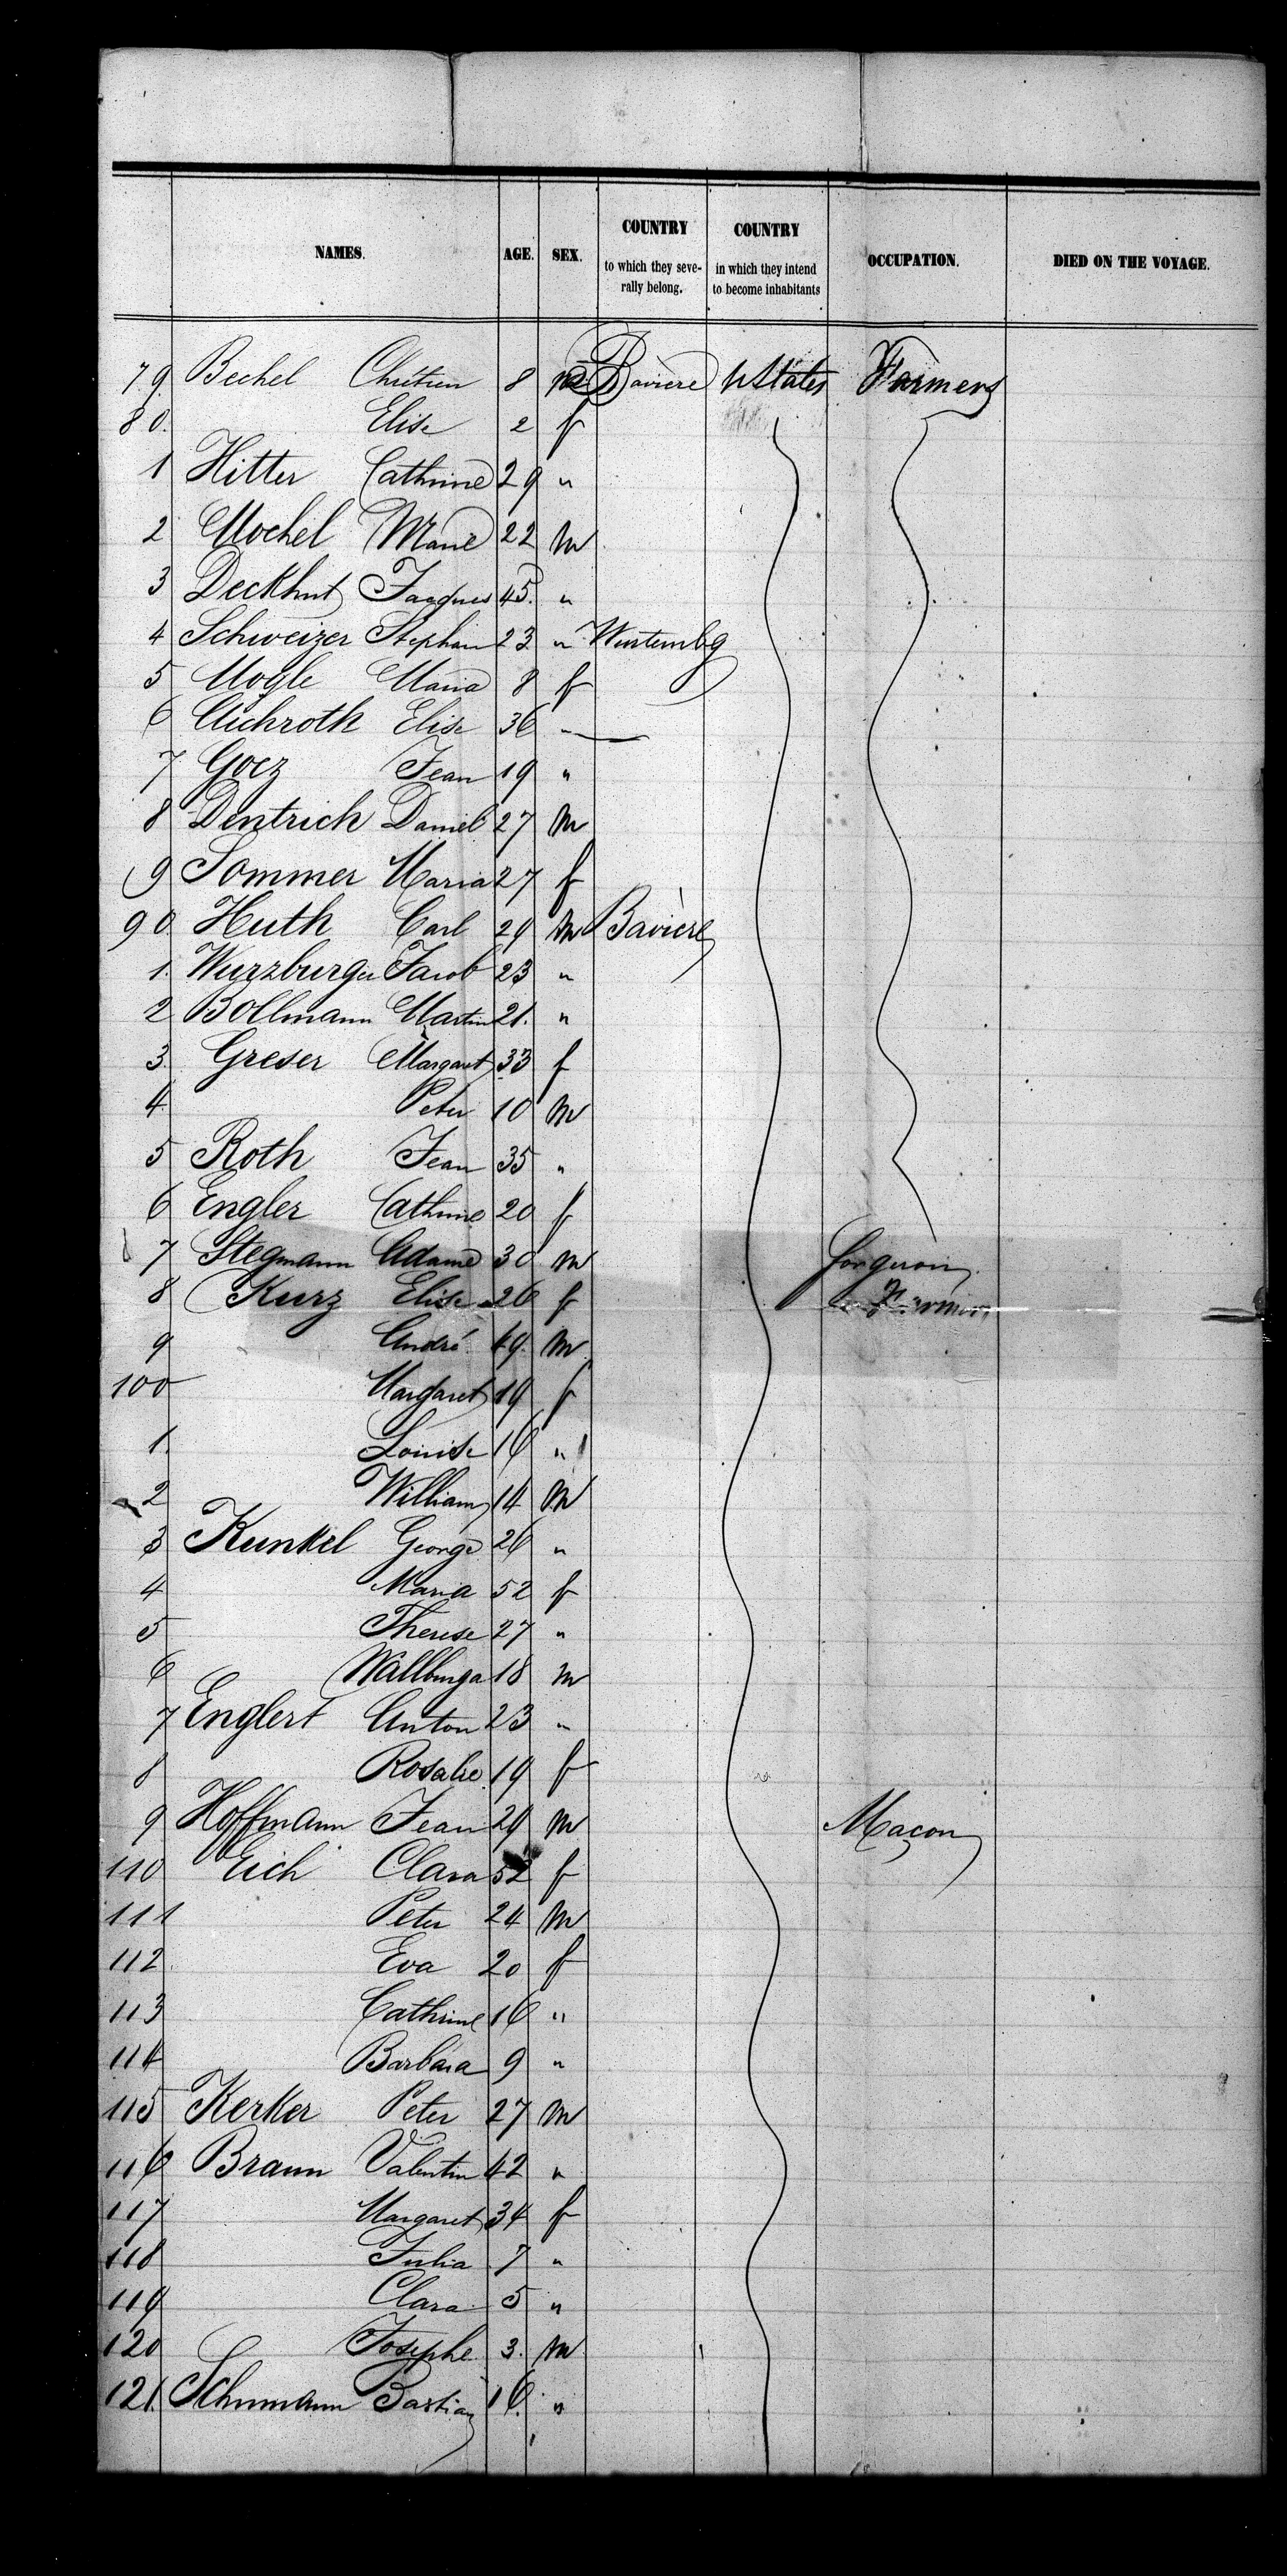 NAMES. AGE. SEX. COUNTRY to which they severally belong. COUNTRY in which they intend to become inhabitants OCCUPATION. DIED ON THE VOYAGE.
79 Bechel Chrétien 8 m Bavière UStates Farmers
80. Elise 2 f
1 Hitter Cathrine 29 "
2 Mochel Marie 22 m
3 Deckhut Jacques 45. "
4 Schweizer Stephan 23 " Wurtembg
5 Mogle Maria 8 f
6 Aichroth Elise 36 "
7 Goez Jean 19 "
8 Dentrich Daniel 27 m
9 Sommer Maria 27 f
90 Huth Carl 29 m Bavière
1. Wurzburger Jacob 23 "
2 Bollmann Martin 21. "
3. Greser Margaret 33 f
4. Peter 10 m
5 Roth Jean 35 "
6 Engler Cathrine 20 f
7 Stegmann Adam 30 m forgeron
8 Kurz Elise 26 f
9 André 49. m
100 Margaret 19 f
1. Louise 16 "
2 William 14 m
3 Kunkel George 26 "
4 Maria 52 f
5 Therese 27 "
6 Wallburga 18 m
7 Englert Anton 23 "
8 Rosalie 19 f
9 Hoffmann Jean 29 m Macon
110 Eich Clara 52 f
111 Peter 24 m
112 Eva 20 f
113 Cathrine 16 "
114 Barbara 9 "
115 Kerker Peter 27 m
116 Braun Valentin 42 "
117 Margaret 34 f
118 Julia 7 "
119 Clara 5 "
120 Josephe 3. m
121. Schumann Bastian 16. "